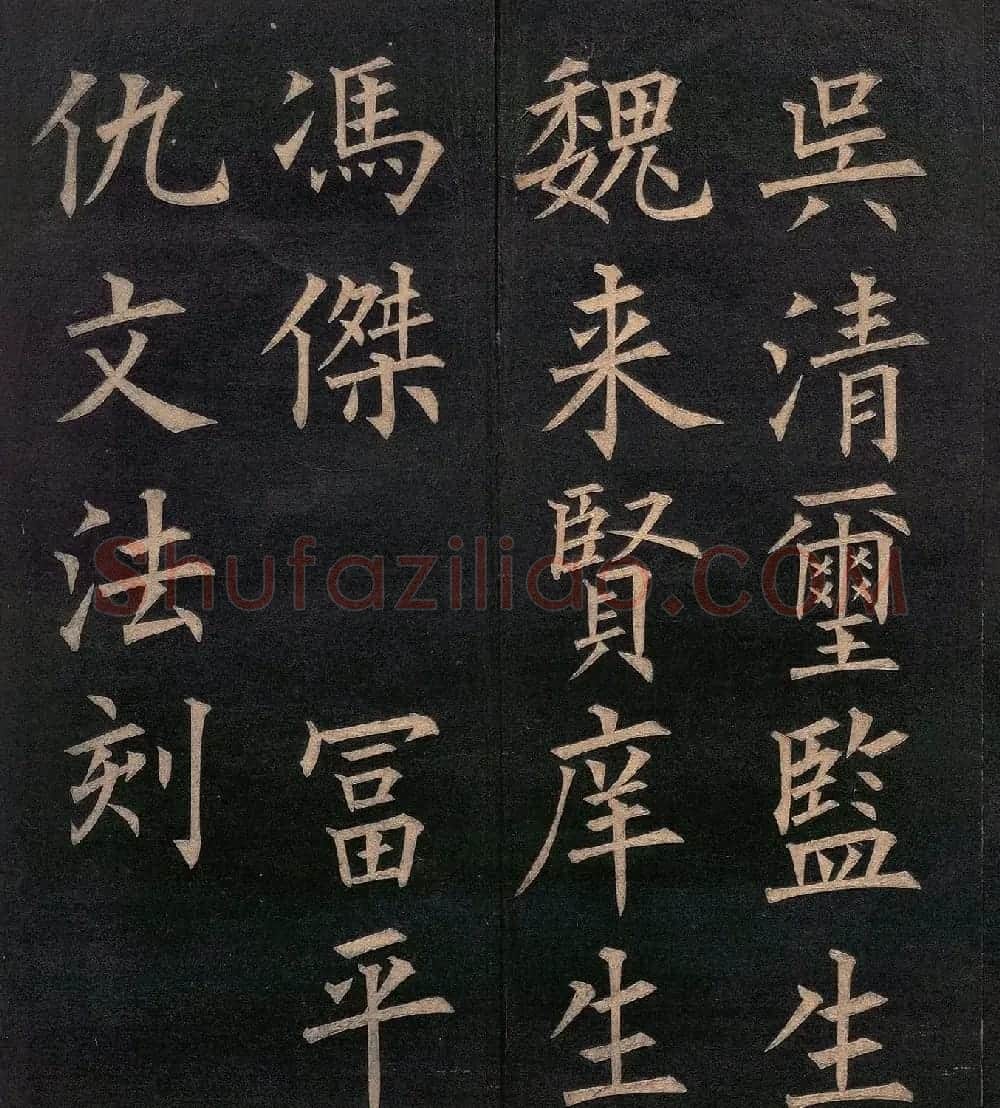 吳清璽監生
魏来賢庠生
馮傑 冨平
仇文法刻
Shufaziliao.COM